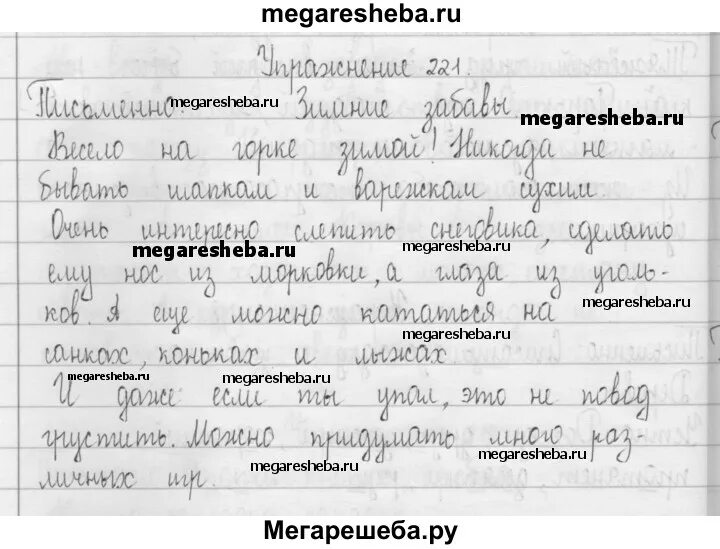 megaresheba.ru
Упражнение 221.
Письменно. megaresheba.ru Зимние забавы
megaresheba.ru
Весело на горке зимой! Никогда не
бывать шапкам и варежкам сухим
Очень интересно слепить снеговика, сделать
megaresheba.ru megaresheba.ru
ему нос из морковки, а глаза из уголь-
megaresheba.ru
ков. А еще можно кататься на
megaresheba.ru
санках, коньках и лыжах
megaresheba.ru megaresheba.ru
И даже если ты упал, это не повод
грустить. Можно придумать много раз-
megaresheba.ru megaresheba.ru
личных игр.
Мегарешеба.ру